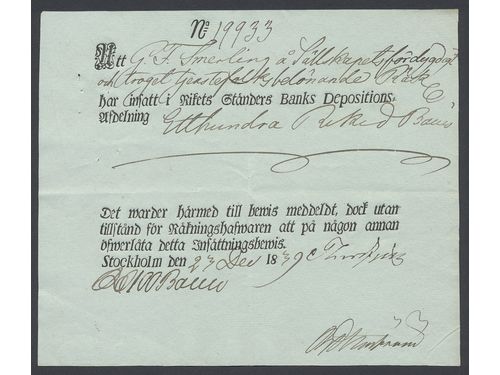 No 19933
Att G. F. Smerling å Sällskapets för dygdigt
och troget tjenstefolks belönande Räk
har insatt i Rikets Ständers Banks Depositions-
Afdelning Etthundra Rksd Banco
Det warder härmed till bewis meddeldt, dock utan
tillstånd för Räkningshafwaren att på någon annan
öfwerlåta detta Insättningsbewis.
Stockholm den 23 Dec 1839
100 Banco